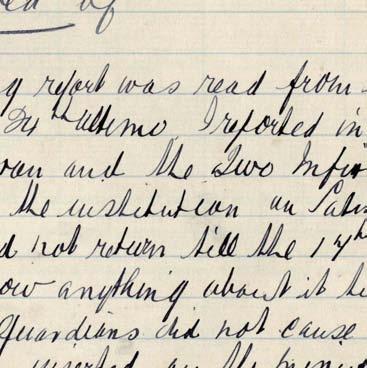 of
g report was read from
24th ultimo, I reported in
and the Two Infir
the institution on Satu
d not return till the 17th
ow anything about it ti
Guardians did not cause
inserted on the minu